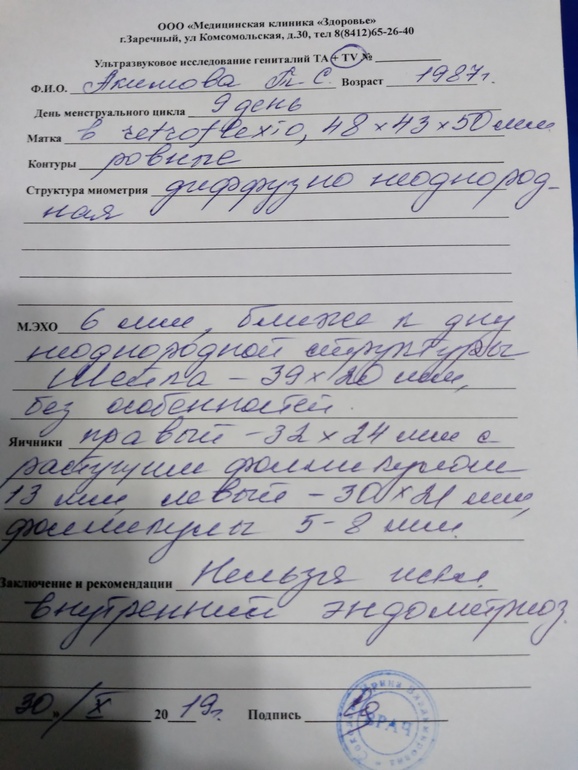 ООО «Медицинская клиника «Здоровье»
г.Заречный, ул Комсомольская, д.30, тел 8(8412)65-26-40
Ультразвуковое исследование гениталий ТА + TV №
Ф.И.О. Акимова Т. С. Возраст 1987г.
День менструального цикла 9 день
Матка в retroflexio, 48×43×50мм
Контуры ровные
Структура миометрия диффузно неоднород-
ная
М.ЭХО 6 мм, ближе к дну
неоднородной структуры
Шейка - 39×20 мм,
без особенностей.
Яичники правый - 32×24 мм с
растущим фолликулом
13 мм левый - 30×21 мм,
фолликулы 5-8 мм.
Заключение и рекомендации Нельзя искл.
внутренний эндометриоз.
30 » / X 20 19г. Подпись
ВРАЧ